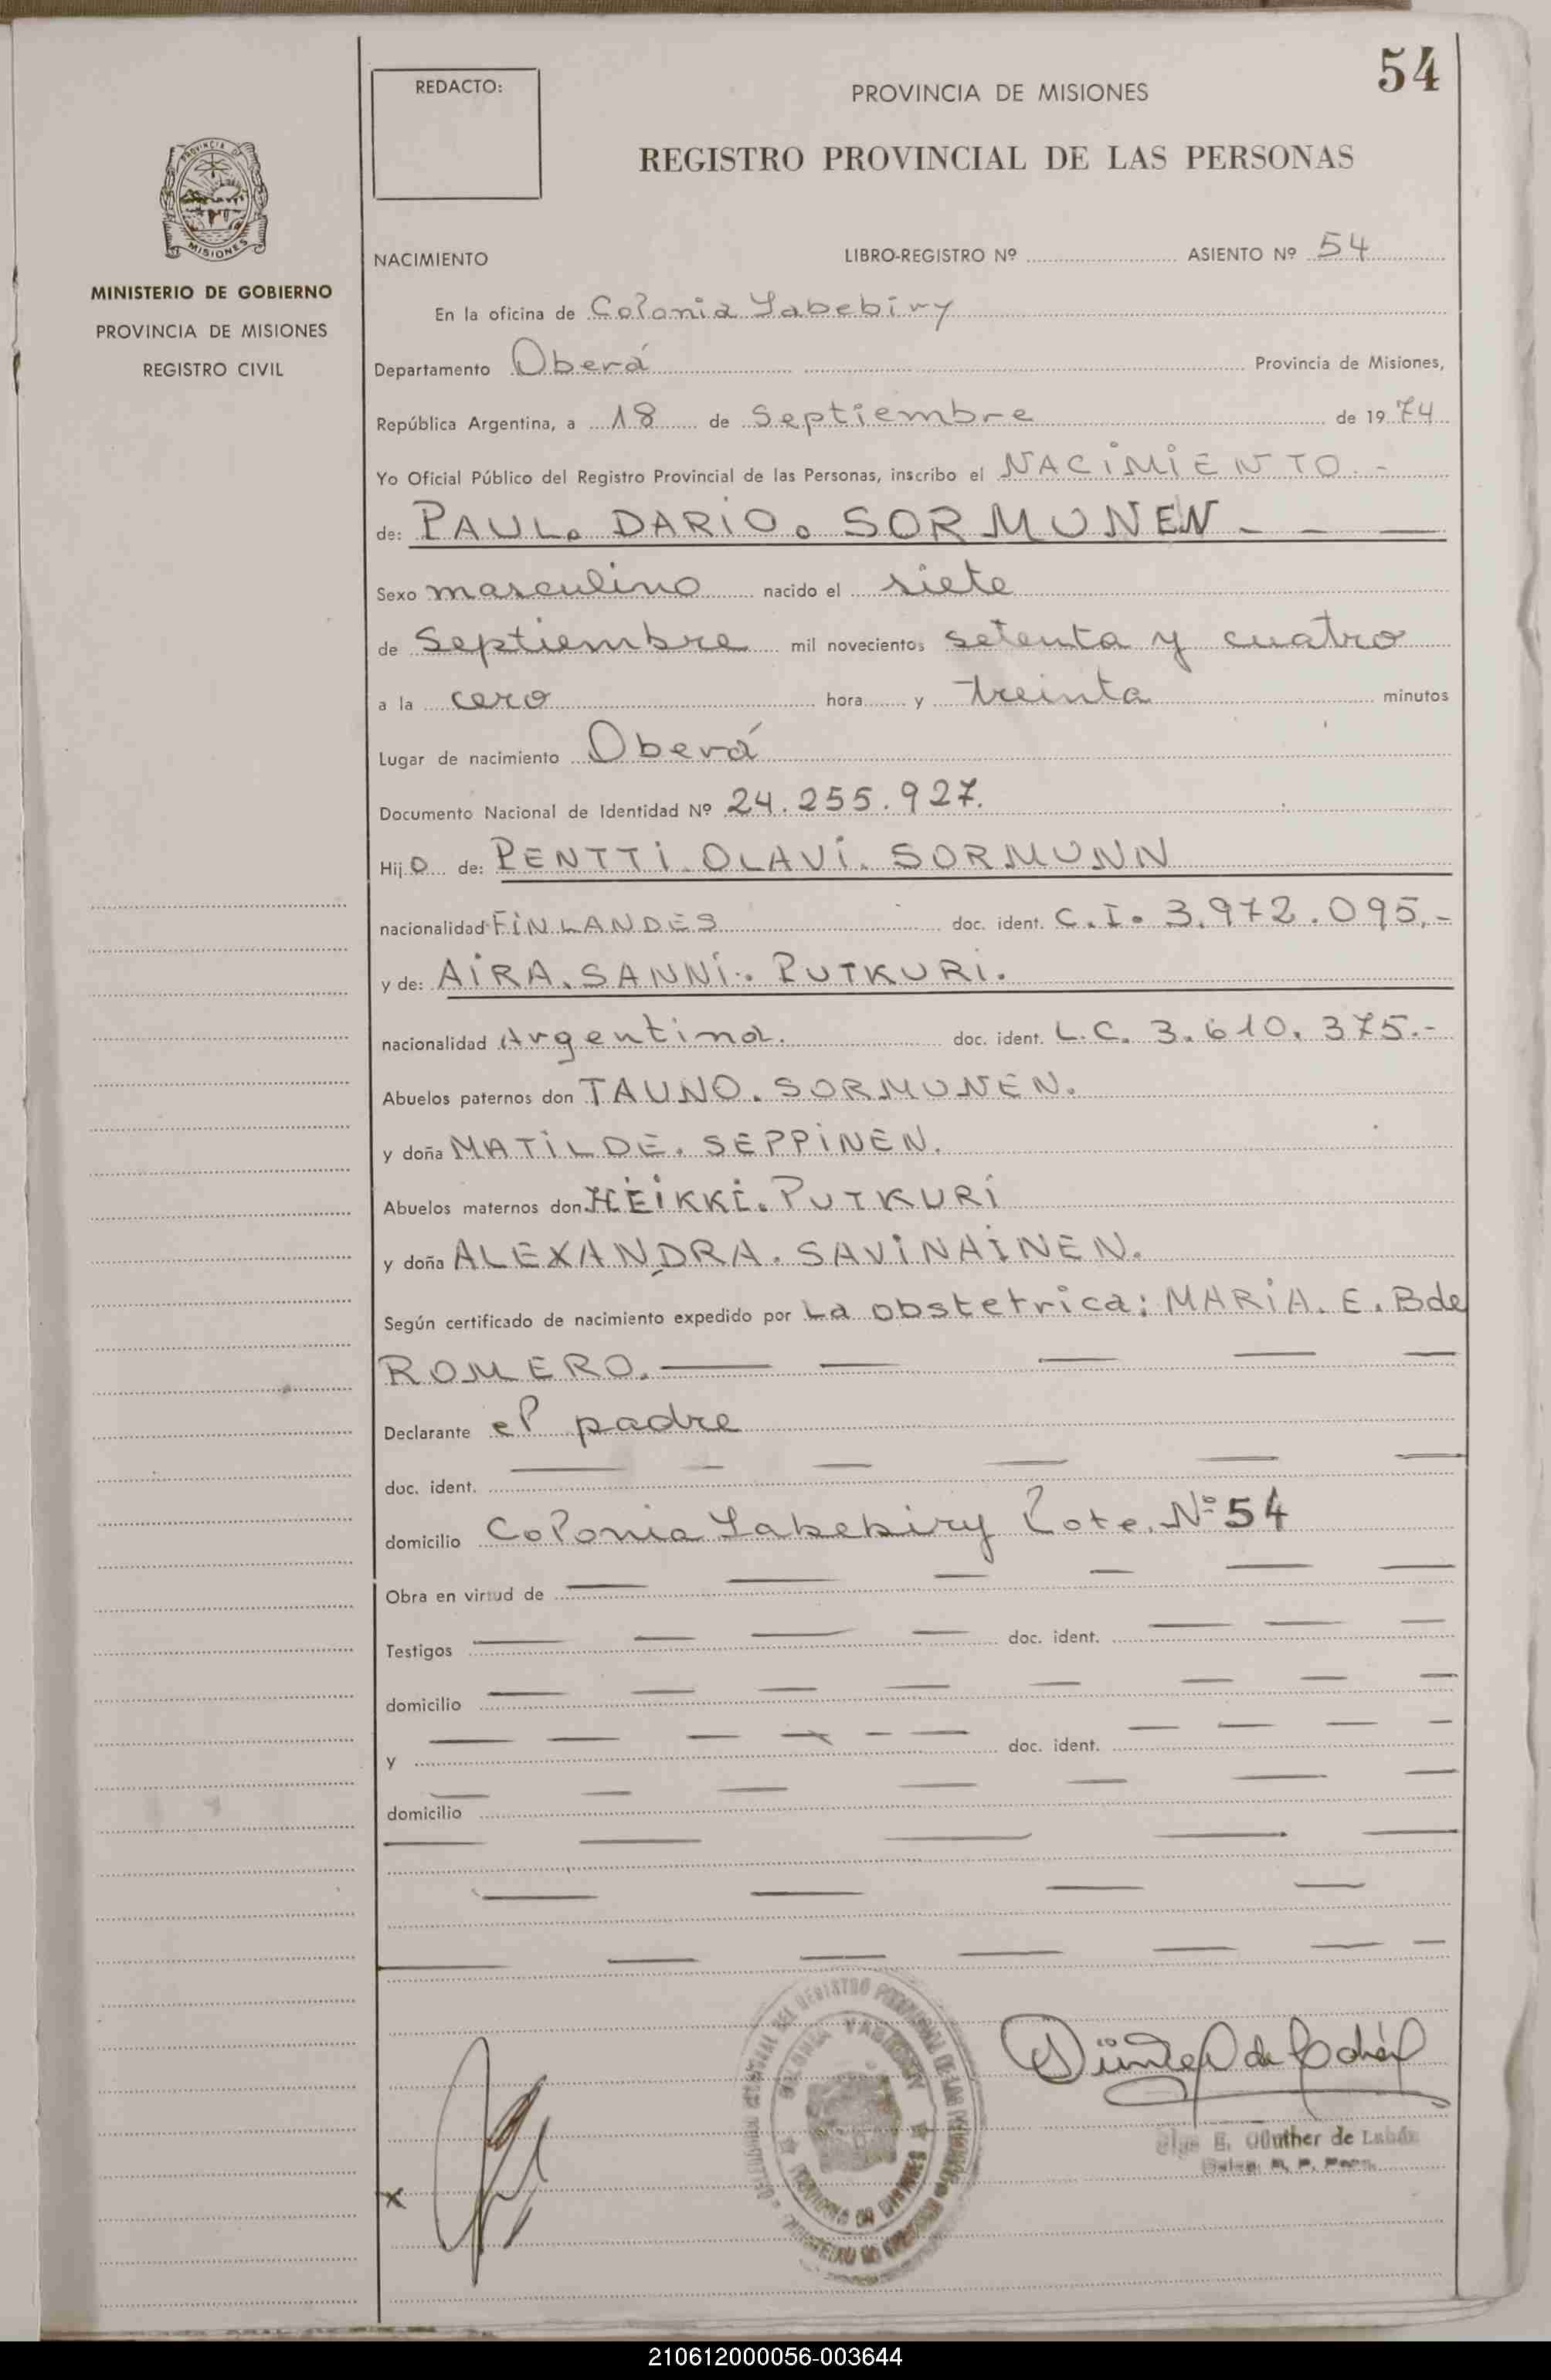 54
REDACTO:
PROVINCIA DE MISIONES
REGISTRO PROVINCIAL DE LAS PERSONAS
PROVINCIA DE
MISIONES
MINISTERIO DE GOBIERNO
PROVINCIA DE MISIONES
REGISTRO CIVIL
NACIMIENTO LIBRO-REGISTRO Nº ASIENTO Nº 54
En la oficina de Colonia Yabebiry
Departamento Oberá Provincia de Misiones,
República Argentina, a 18 de Septiembre de 1974
Yo Oficial Público del Registro Provincial de las Personas, inscribo el NACIMIENTO.-
de: PAUL. DARIO. SORMUNEN - - —
Sexo masculino nacido el siete
de Septiembre mil novecientos setenta y cuatro
a la cero hora y treinta minutos
Lugar de nacimiento Oberá
Documento Nacional de Identidad Nº 24.255.927.
Hijo de: PENTTI. OLAVI. SORMUNN
nacionalidad FINLANDES doc. ident. C.I. 3.972.095.-
y de: AIRA. SANNI. PUTKURI.
nacionalidad Argentina. doc. ident. L.C. 3.610.375.-
Abuelos paternos don TAUNO. SORMUNEN.
y doña MATILDE. SEPPINEN.
Abuelos maternos don HEIKKI. PUTKURI
y doña ALEXANDRA. SAVINAINEN.
Según certificado de nacimiento expedido por La obstetrica: MARIA. E. B de
ROMERO. — — — — —
Declarante el padre
doc. ident.
domicilio Colonia Yabebiry Lote. Nº 54
Obra en virtud de
Testigos doc. ident.
domicilio
y doc. ident.
domicilio
Günther de Labán
E. Günther de Labán
x
210612000056-003644